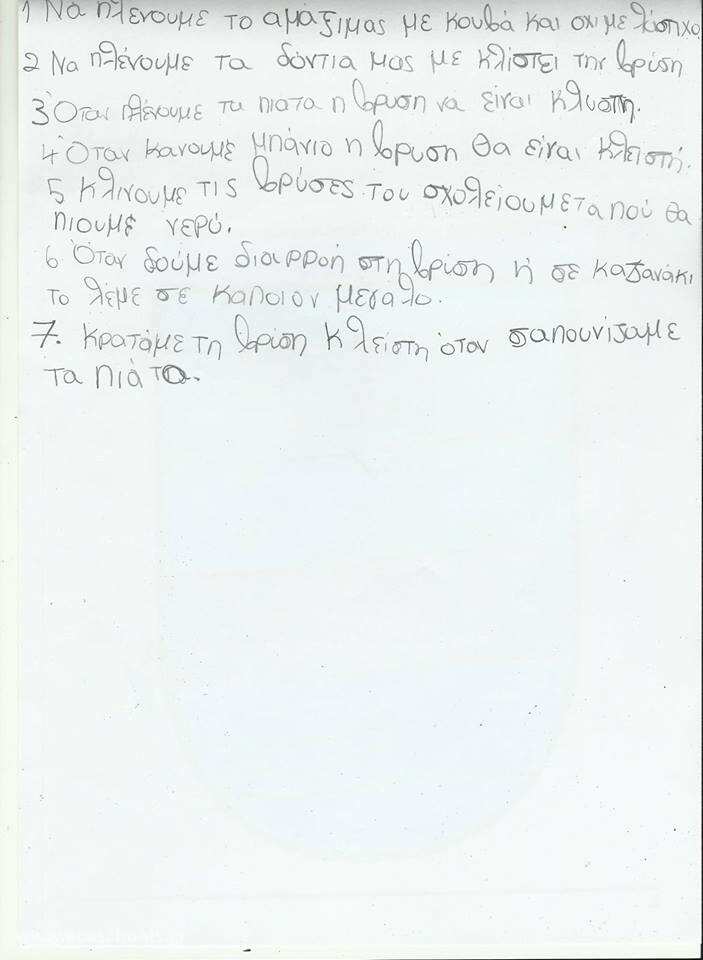 1 Να πλενουμε το αμάξιμας με κουβά και οχι με λάστιχο
2 Να πλένουμε τα δόντια μας με κλιστει την βρίση
3 Όταν πλένουμε τα πιατα η βρυση να είναι κλυστη.
4 Όταν κανουμε μπάνιο η βρυση θα είναι κλειστή.
5 κλινουμε τις βρύσες του σχολείου μετα πού θα
πιουμε νερό.
6 Όταν δούμε διαρροή στη βρίση ή σε καζανάκι
το λέμε σε καποιον μεγαλο.
7. Κρατάμε τη βρίση κλείστη όταν σαπουνίζαμε
τα πιάτα.